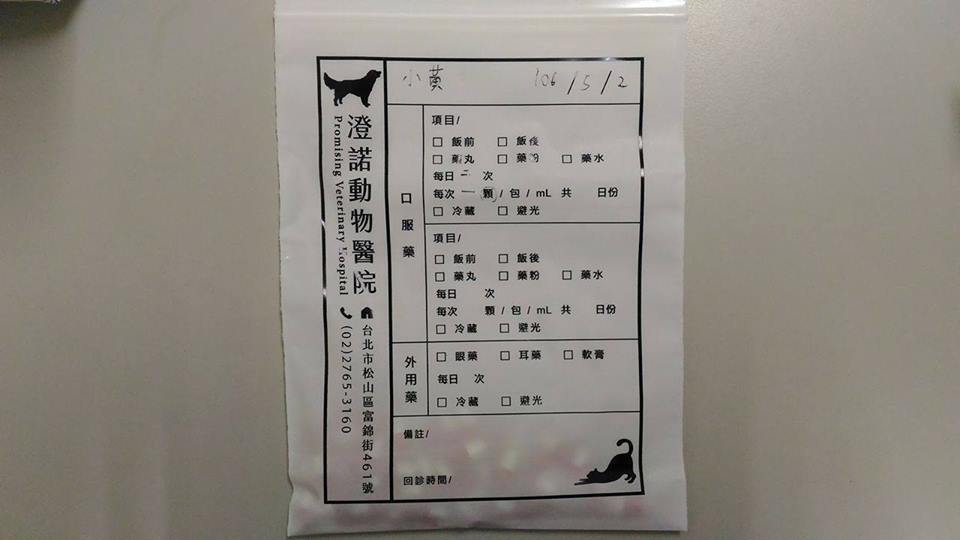 小黃 106/5/2
澄諾動物醫院
Promising Veterinary Hospital
台北市松山區富錦街461號
(02)2765-3160
口服藥
項目/
□ 飯前 □ 飯後
□ 藥丸 □ 藥粉 □ 藥水
每日 二 次
每次 一 顆 / 包 / mL 共 日份
□ 冷藏 □ 避光
項目/
□ 飯前 □ 飯後
□ 藥丸 □ 藥粉 □ 藥水
每日 次
每次 顆 / 包 / mL 共 日份
□ 冷藏 □ 避光
外用藥
□ 眼藥 □ 耳藥 □ 軟膏
每日 次
□ 冷藏 □ 避光
備註/
回診時間/